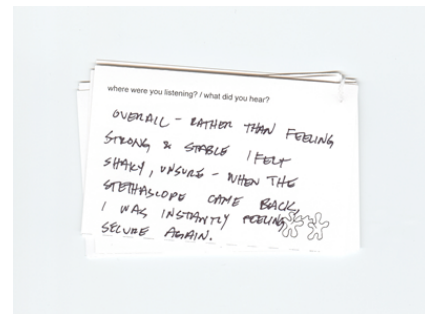 where were you listening? / what did you hear?
OVERALL - RATHER THAN FEELING
STRONG & STABLE I FELT
SHAKY, UNSURE - WHEN THE
STETHASCOPE CAME BACK,
I WAS INSTANTLY FEELING
SECURE AGAIN.